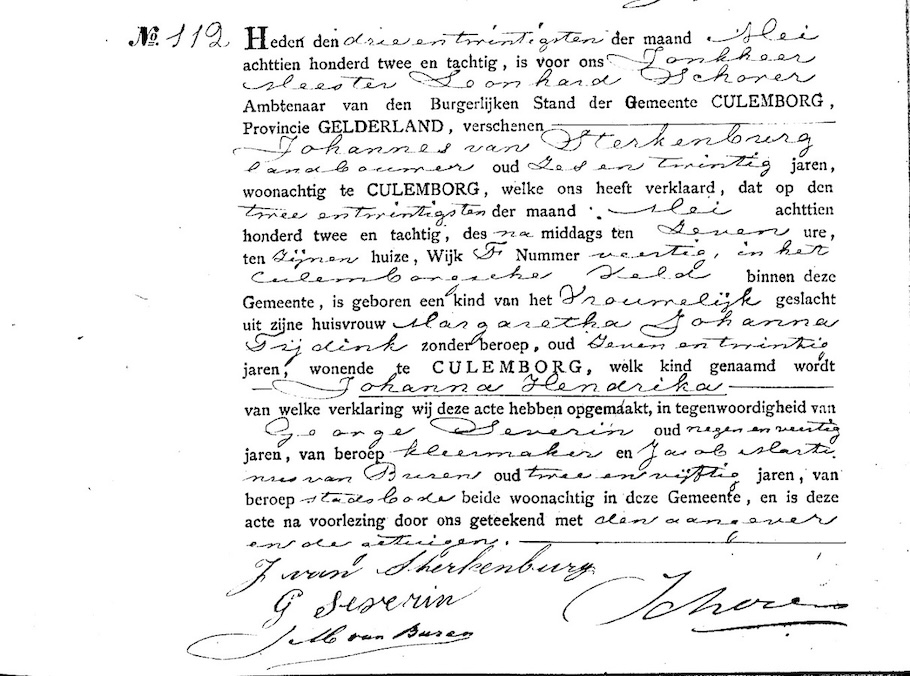 No. 112 Heden den drie en twintigsten der maand Mei
achttien honderd twee en tachtig, is voor ons Jonkheer
Meester Leonhard Schorer
Ambtenaar van den Burgerlijken Stand der Gemeente CULEMBORG,
Provincie GELDERLAND, verschenen
Johannes van Sterkenburg
landbouwer oud Zes en twintig jaren,
woonachtig te CULEMBORG, welke ons heeft verklaard, dat op den
twee en twintigsten der maand Mei achttien
honderd twee en tachtig, des na middags ten Zeven ure,
ten Zijnen huize, Wijk F Nummer veertig, in het
Culemborgsche Veld binnen deze
Gemeente, is geboren een kind van het Vrouwelijk geslacht
uit zijne huisvrouw Margaretha Johanna
Tijdink zonder beroep, oud Zeven en twintig
jaren, wonende te CULEMBORG, welk kind genaamd wordt
Johanna Hendrika
van welke verklaring wij deze acte hebben opgemaakt, in tegenwoordigheid van
George Severin oud negen en veertig
jaren, van beroep kleermaker en Jacob Marti
nus van Buren oud twee en vijftig jaren, van
beroep stadsbode beide woonachtig in deze Gemeente, en is deze
acte na voorlezing door ons geteekend met den aangever
en de getuigen.
J van Sterkenburg
G Severin
Schorer
J M van Buren